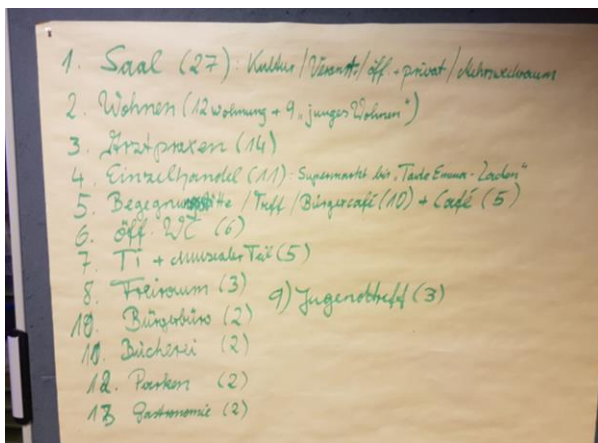 1. Saal (27): Kultur/Veranst./öff. + privat/Mehrzweckraum
2. Wohnen (12 Wohnung + 9 „junges Wohnen")
3. Arztpraxen (14)
4. Einzelhandel (11) - Supermarkt bis „Tante Emma-Laden"
5. Begegnungsstätte/Treff/Bürgercafé (10) + Café (5)
6. öff. WC (6)
7. TI + Musealer Teil (5)
8. Freiraum (3) 9) Jugendtreff (3)
10. Bürgerbüro (2)
11. Bücherei (2)
12. Parken (2)
13 Gastronomie (2)